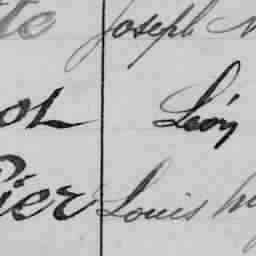 te Joseph
ol Léon
ier Louis